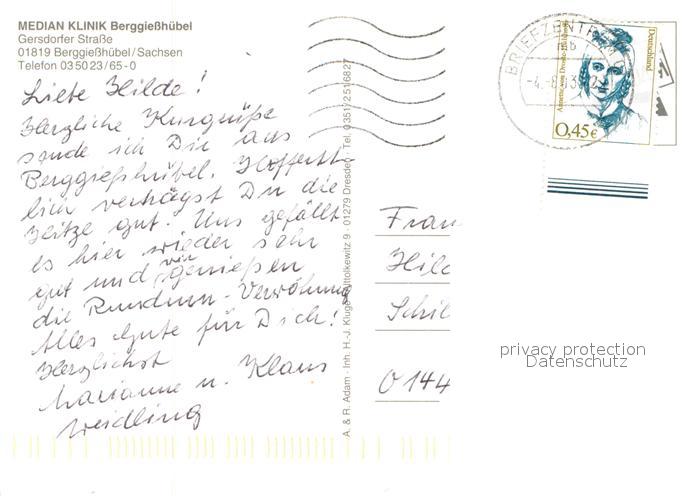 MEDIAN KLINIK Berggießhübel
Gersdorfer Straße
01819 Berggießhübel/Sachsen
Telefon 03 50 23 / 65 - 0
Liebe Hilde!
Herzliche Kurgrüße
sende ich Dir aus
Berggießhübel. Hoffent-
lich verträgst Du die
Hitze gut. Uns gefällt
es hier wieder sehr
gut und wir genießen
die Rundum-Verwöhnung
Alles Gute für Dich!
Herzlichst
Marianne u. Klaus
Weidling
A. & R. Adam · Inh. H.-J. Kluge · Wittolkewitz 9 · 01279 Dresden · Tel. 0351/2516827
BRIEFZENTRUM
Annette von Droste-Hülshoff
Deutschland
0,45€
Frau
Hild
Schil
0144
privacy protection
Datenschutz